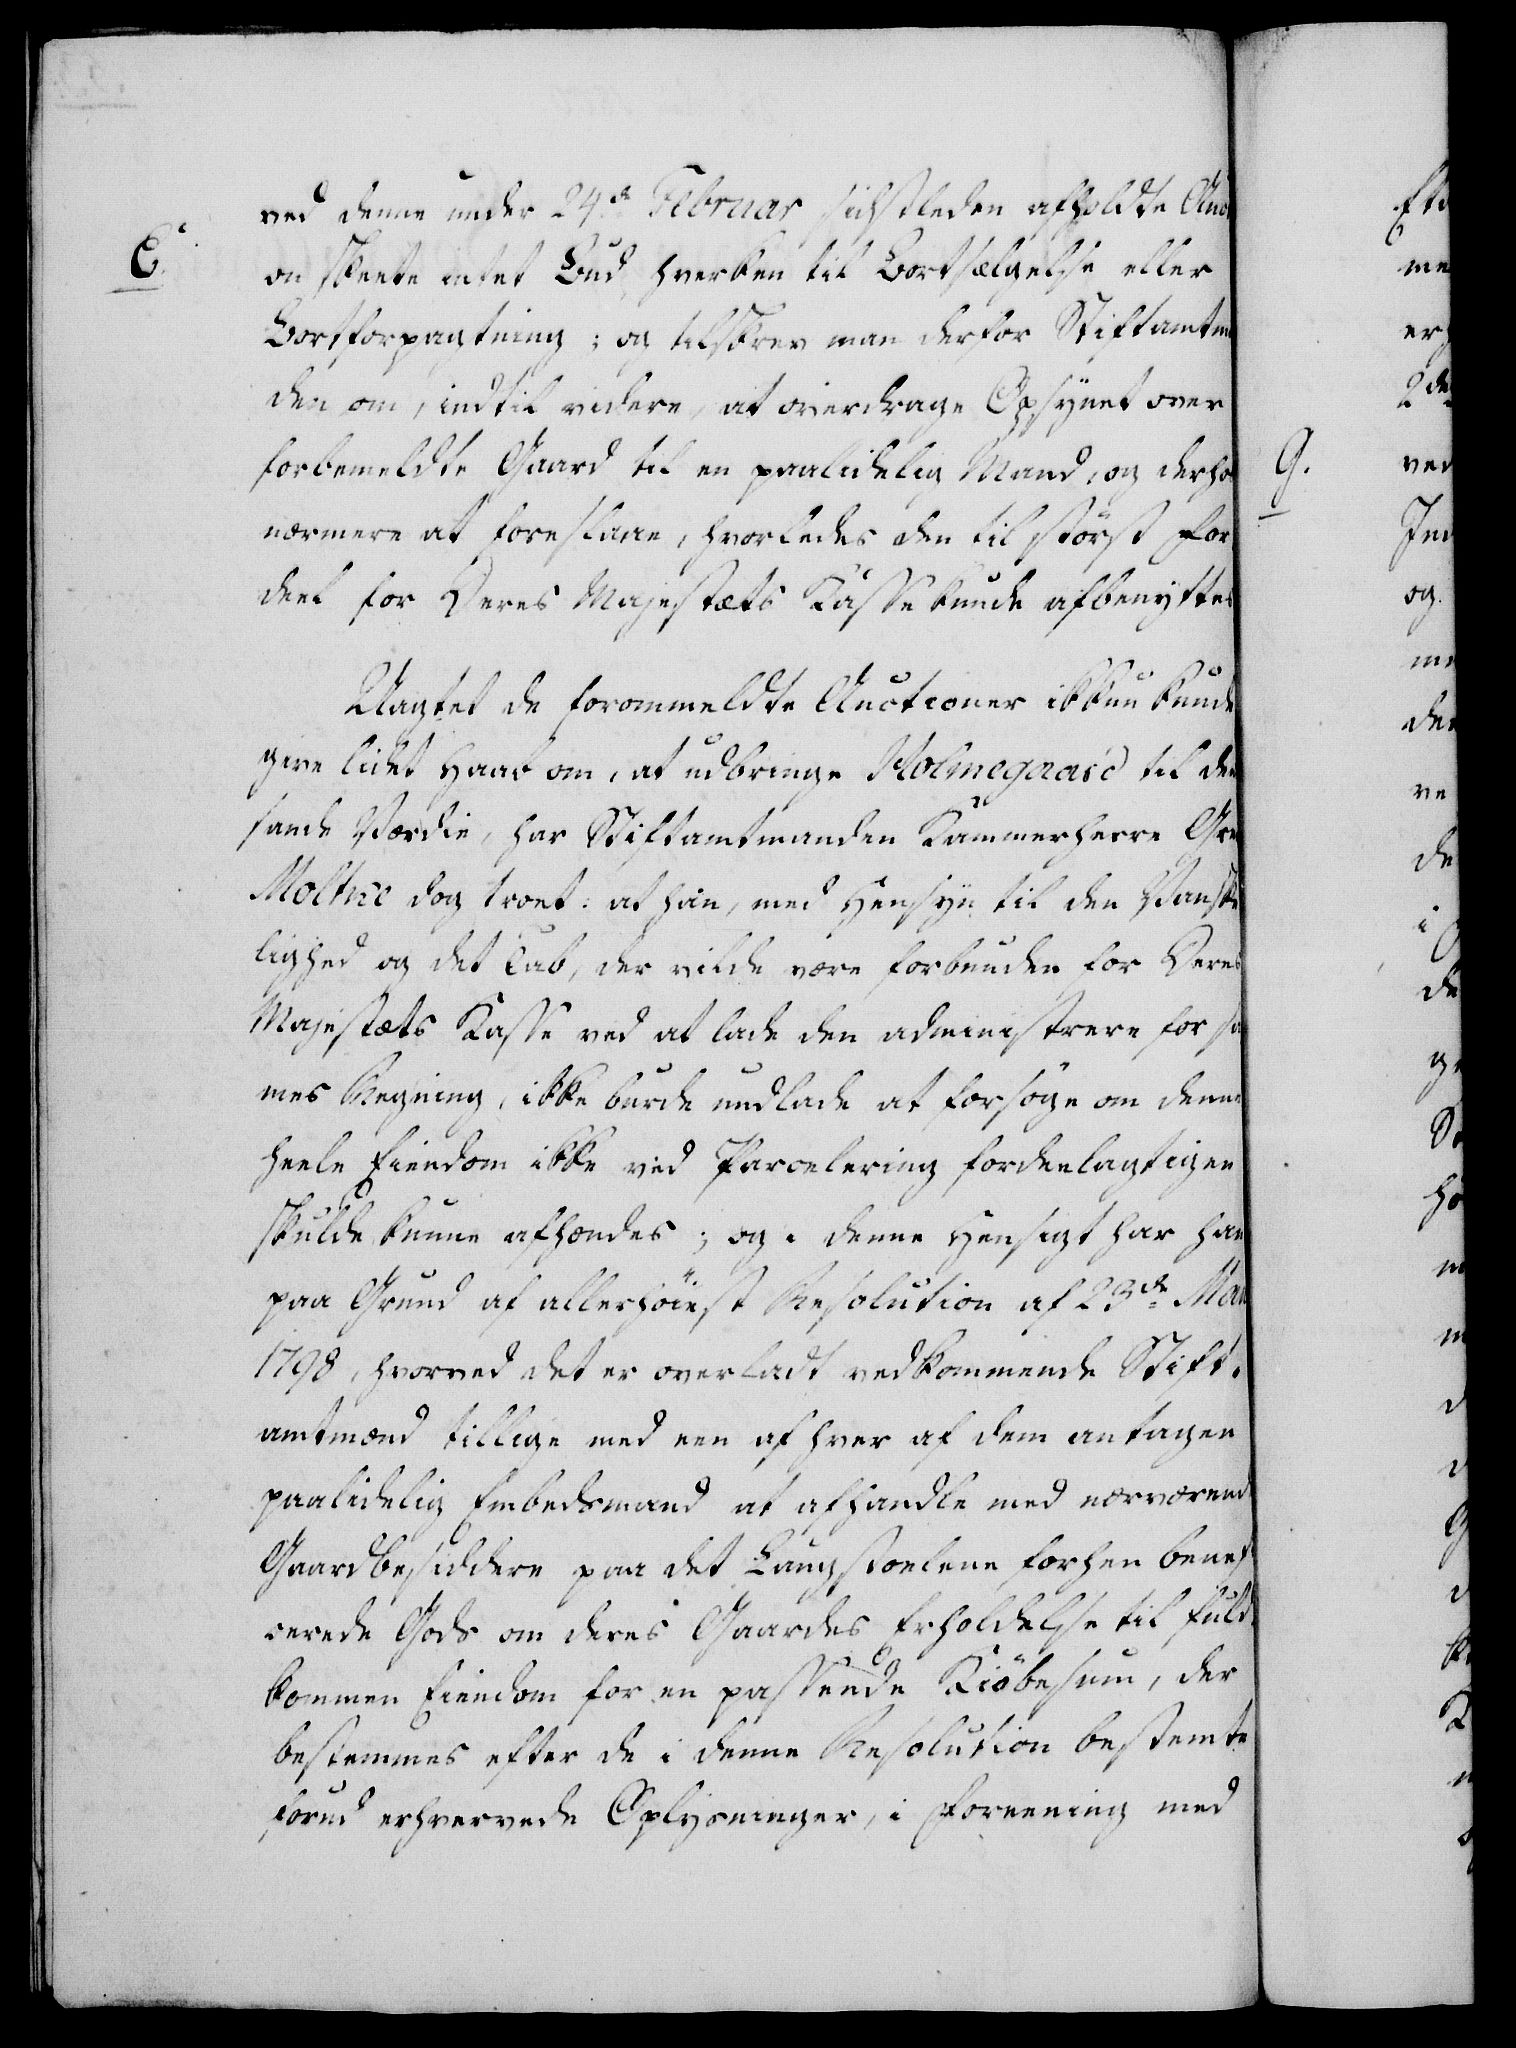 ved denne under 24de Februar sidstleden afholdte Auc
E.
on skeete intet Bud, hverken til Bortsælgelse eller
Bortforpagtning; og tilskrev man derfor Stiftamtm
den om, indtil videre, at overdrage Opsynet over
forbemeldte Gaard til en paalidelig Mand, og derho
nærmere at foreslaae, hvorledes den til störst For
deel for Deres Majestæts Kasse kunde afbenyttes
Uagtet de forommeldte Auctioner ikkun kunde
give lidet Haab om, at udbringe Holmegaard til den
sande Værdie, har Stiftamtmanden Kammerherre Gre
Moltke dog troet: at han, med Hensyn til den Vanske
lighed og det Tab, der vilde være forbunden for Deres
Majestæts Kasse ved at lade den administrere for sa
mes Regning, ikke burde undlade at forsöge om denne
heele Eiendom ikke ved Parcelering fordeelagtigen
skulde kunne afhændes; og i denne Hensigt har han
paa Grund af allerhöiest Resolution af 23de Mai
1798, hvorved det er overladt vedkommende Stift-
amtmænd tillige med een af hver af dem antagen
paalidelig Embedsmand at afhandle med nærværende
Gaardbesiddere paa det Laugstolene forhen benef
cerede Gods om deres Gaardes Erholdelse til fuld-
kommen Eiendom for en passende Kiöbesum, der
bestemmes efter de i denne Resolution bestemte
forud erhvervede Oplysninger, i Foreening med
G.